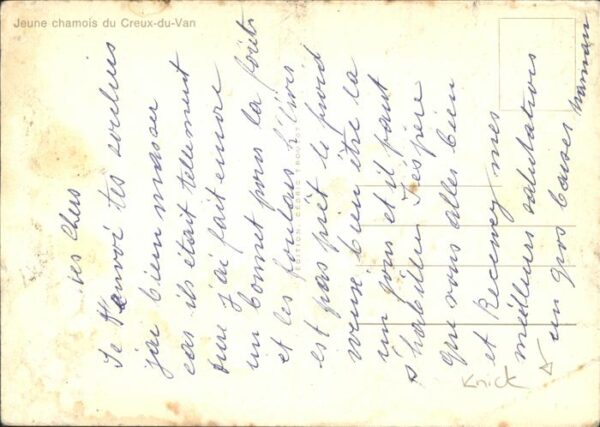 Jeune chamois du Creux-du-Van
EDITION, CÉDRIC TROUTOT
Mes Chers
Je t'envoié tes souliers
j'ai bien masser
cas ils était tellement
dure j'ai fait encore
un bonnet pour la forêts
et les foulons l'hivers
est pas prêt le froid
veux bien être la
un jour et il faut
s'habiller J'espère
que vous allez bien
et Recevez mes
meilleurs salutations
un gros baiser maman
Knick